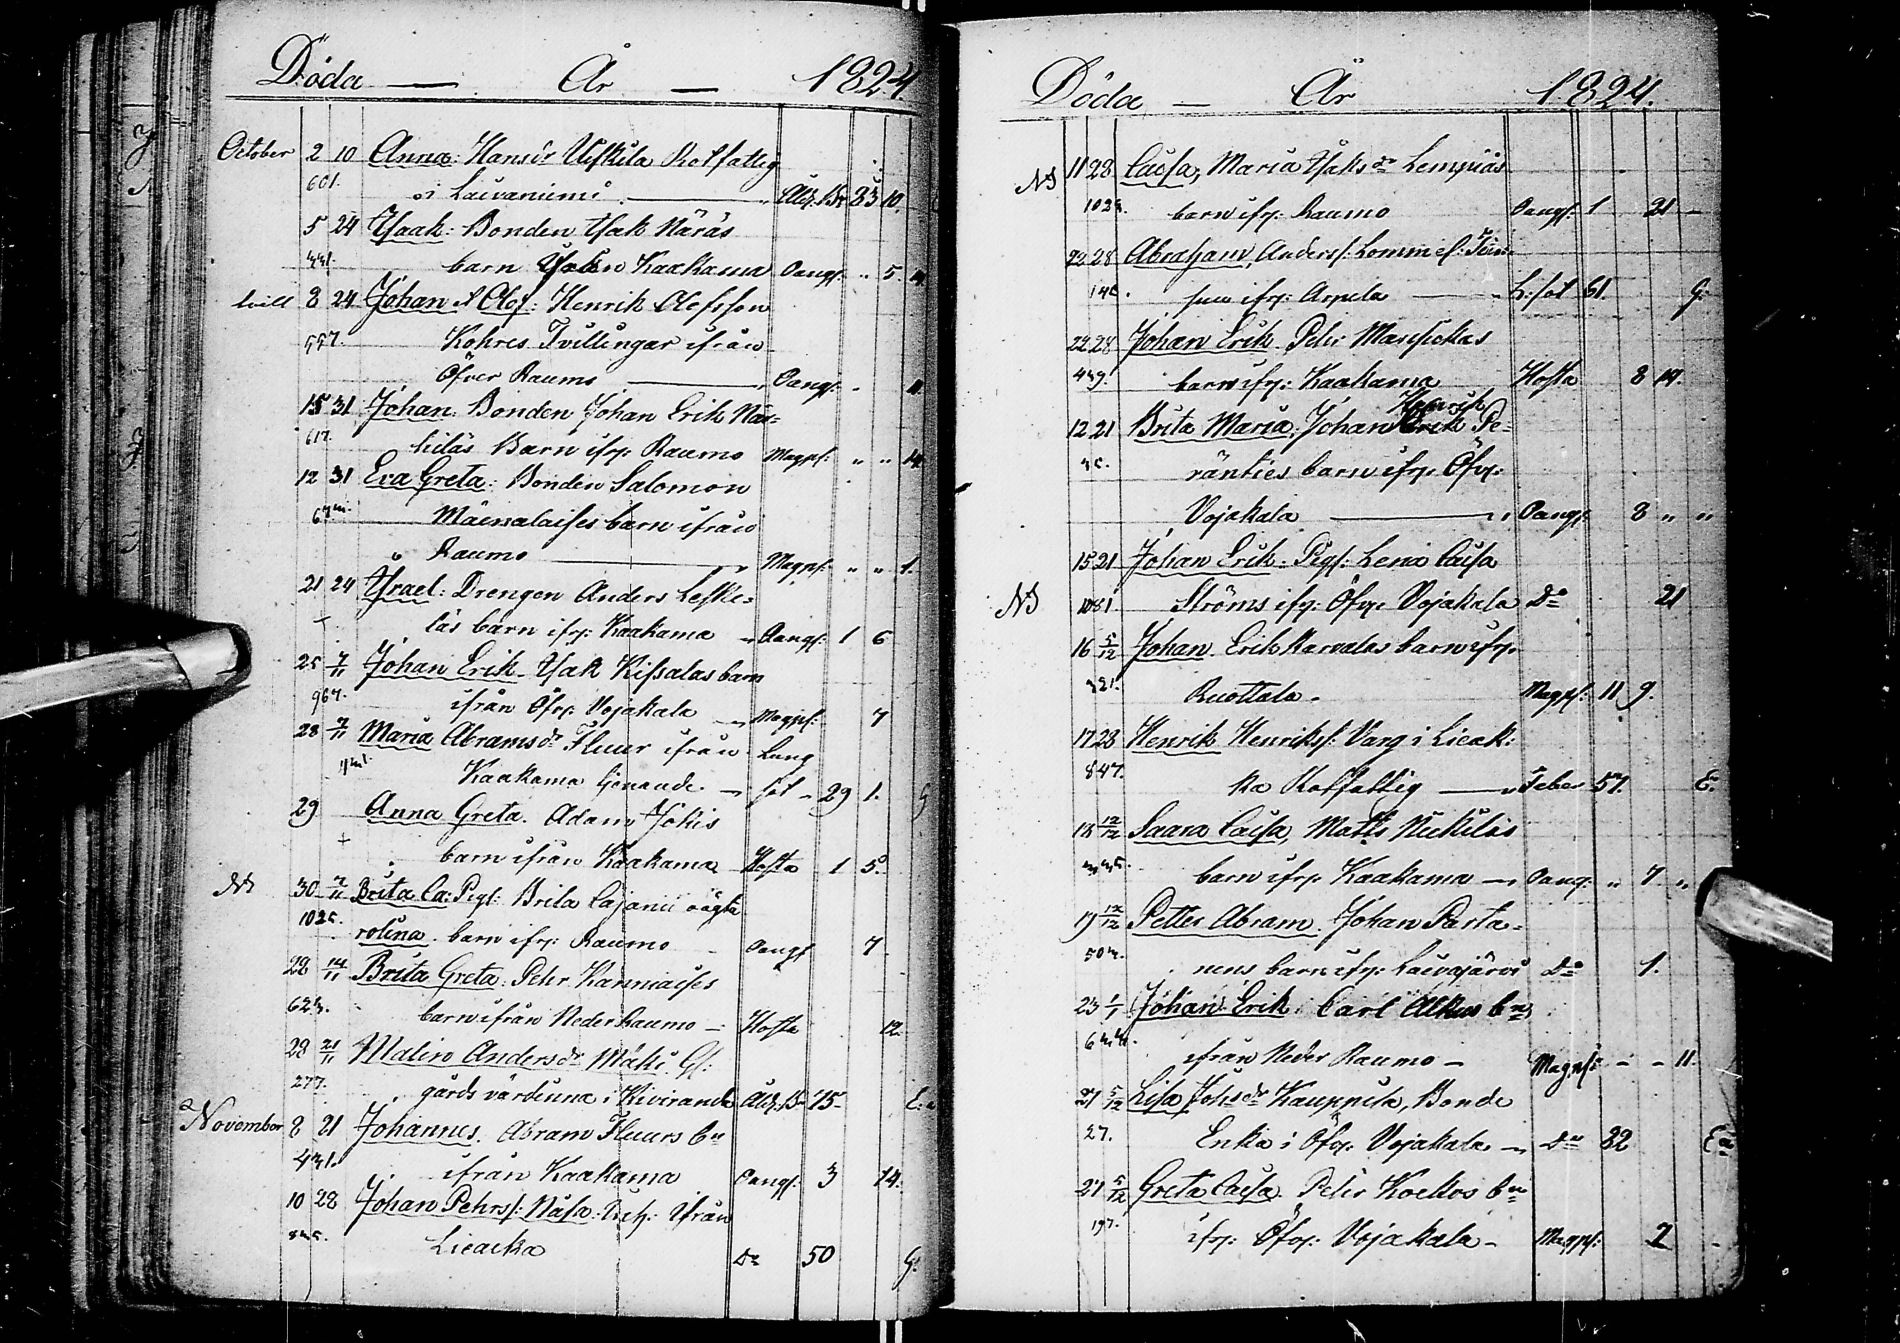 Döda — År — 1824.
October 2 10 Anna: Hansdr Uski­la Rotfattig
601. i Laivaniemi Åld. Br 83 10.
5 24 Isaak: Bonden Isak Näräs
441. barn Kaakama Oangf: " 5. 14
tvill 8 24 Johan & Olof: Henrik Olofsson
557. Kohres Tvillingar ifrån
Öfver Raumo Oangf: 11
15 31 Johan: Bonden Johan Erik När-
617. hiläs Barn ifr: Raumo Magpf: " " 14
12 31 Eva Greta: Bonden Salomon
Mäenalaises barn ifrån
Raumo Magpf: " " 1.
21 24 Israel: Drengen Anders Leske-
+ läs barn ifr: Kaakama Oangf: 1 6
25 7/11 Johan Erik. Isak Kissalas barn
967. ifrån Öfr: Vojakala Magpf: 7
28 7/11 Maria Abramsdr Fluur ifrån Lung
Kaakama tjenande sot 29 1. G
29 Anna Greta. Adam Jokis
+ barn ifrån Kaakama Hosta 1 5.
NB 30 7/11 Brita Ca: Pigf: Brita Cajanii oägta
1025. rolina. barn ifr: Raumo Oangf 7
28 14/11 Brita Greta: Pehr Kanniaises
623. barn ifrån Neder Raumo — Hosta 12
28 21/11 Malin Andersdr Mäki Gl:
277. gårds värdinna i Kiviranda Åld. Br 75 E:
November 8 21 Johannes. Abram Fluurs bn
431. ifrån Kaakama Oangf. 3 14.
10 28 Johan Pehrsf: Näsa: ifrån
Liedakka Do 50 G:
Döda — År 1824.
NB 11 28 Caisa, Maria Isaksdr Lempiäs
barn ifr: Raumo Oangf: 1 21 —
22 28 Abraham, Andersf: Lomm
ifr: Arpela L:sot 61. G:
22 28 Johan Erik. Petter
439. barn ifr: Kaakama Hosta 8 14.
Henrik
12 21 Brita Maria: Johan Erik Pe-
ränties barn ifr: Öfr:
Vojakala Oangf: 8 " "
15 21 Johan Erik: Pigf: Lena Caisa
NB 1081 Ströms ifr: Öfr: Vojakala Do 21
16 5/12 Johan. Erik Karvalas barn ifr:
321. Ruottala. Magpf: 11 9.
17 28 Henrik Henriksf: Varg i Lieak:
847. ka Rotfattig Feber 57. E.
18 12/12 Saara Caisa, Matts Nickiläs
barn ifr: Kaakama Oangf: " 7 "
19 12/12 Petter Abram. Johan Parta-
nens barn ifr: Laivajärvi Do 1.
23 1/1 Johan Erik: Carl Alkus bn
ifrån Neder Raumo — Magpf: - - 11.
27 5/12 Lisa Johsdr Kauppila, Bonde
27. Enka i Öfr: Vojakala Do 82 E
27 5/12 Greta Caisa. Petter Koekos bn
197. ifr: Öfr: Vojakala — Magpf: 2